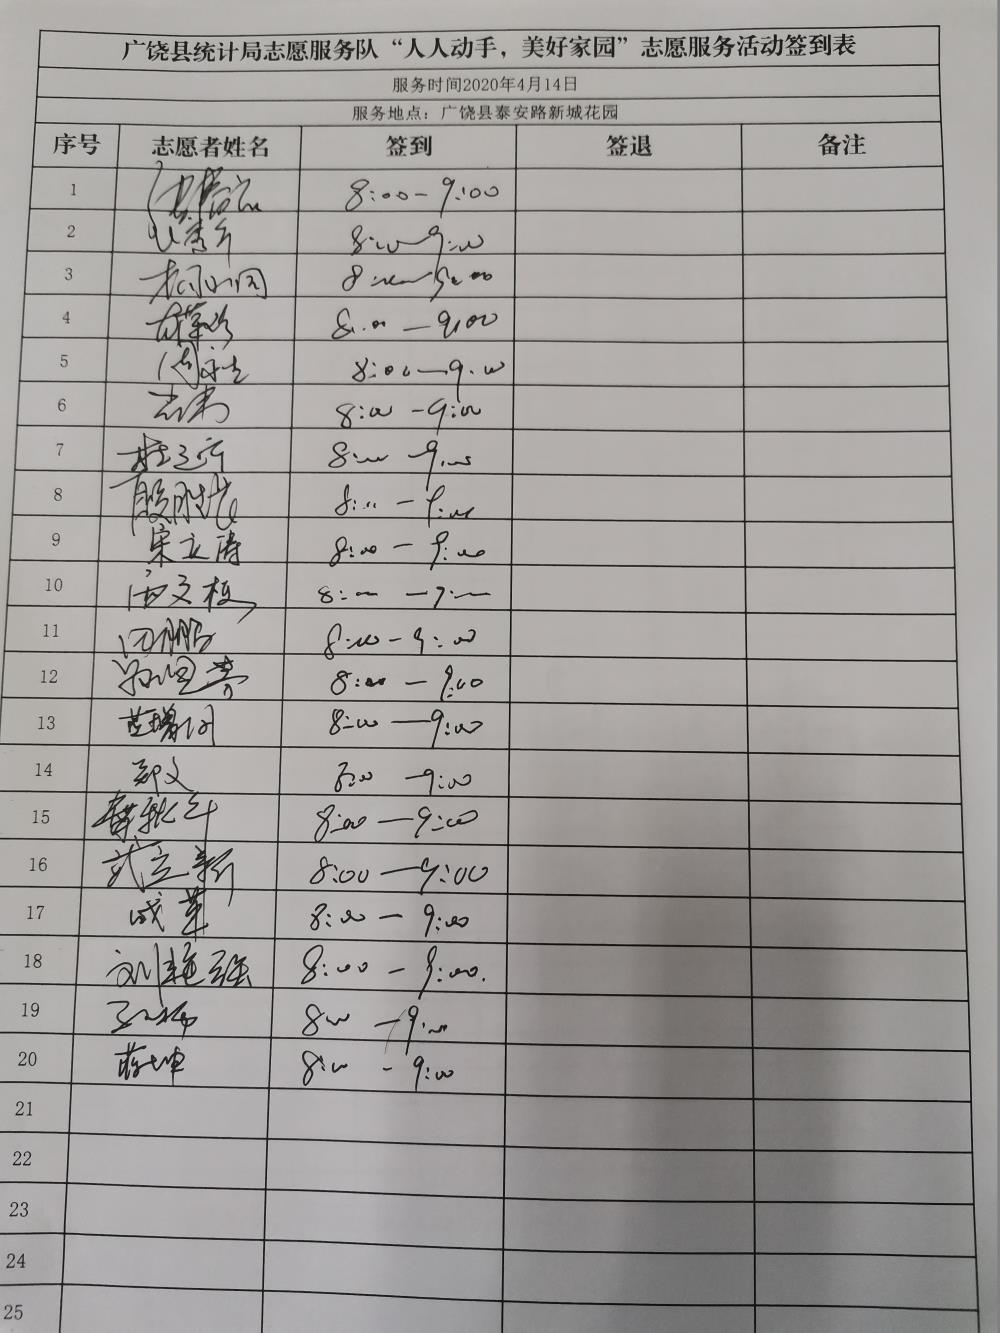 广饶县统计局志愿服务队“人人动手，美好家园”志愿服务活动签到表
服务时间2020年4月14日
服务地点：广饶县泰安路新城花园
序号 志愿者姓名 签到 签退 备注
1 8:00—9:00
2 8:00—9:00
3 8:00—9:00
4 8:00—9:00
5 8:00—9:00
6 8:00—9:00
7 8:00—9:00
8 殷胜 8:00—9:00
9 宋立涛 8:00—9:00
10 文枝 8:00—9:00
11 田鹏 8:00—9:00
12 8:00—9:00
13 8:00—9:00
14 郑文 8:00—9:00
15 8:00—9:00
16 武立新 8:00—9:00
17 成军 8:00—9:00
18 刘艳强 8:00—9:00.
19 8:00—9:00
20 蒋坤 8:00-9:00
21
22
23
24
25